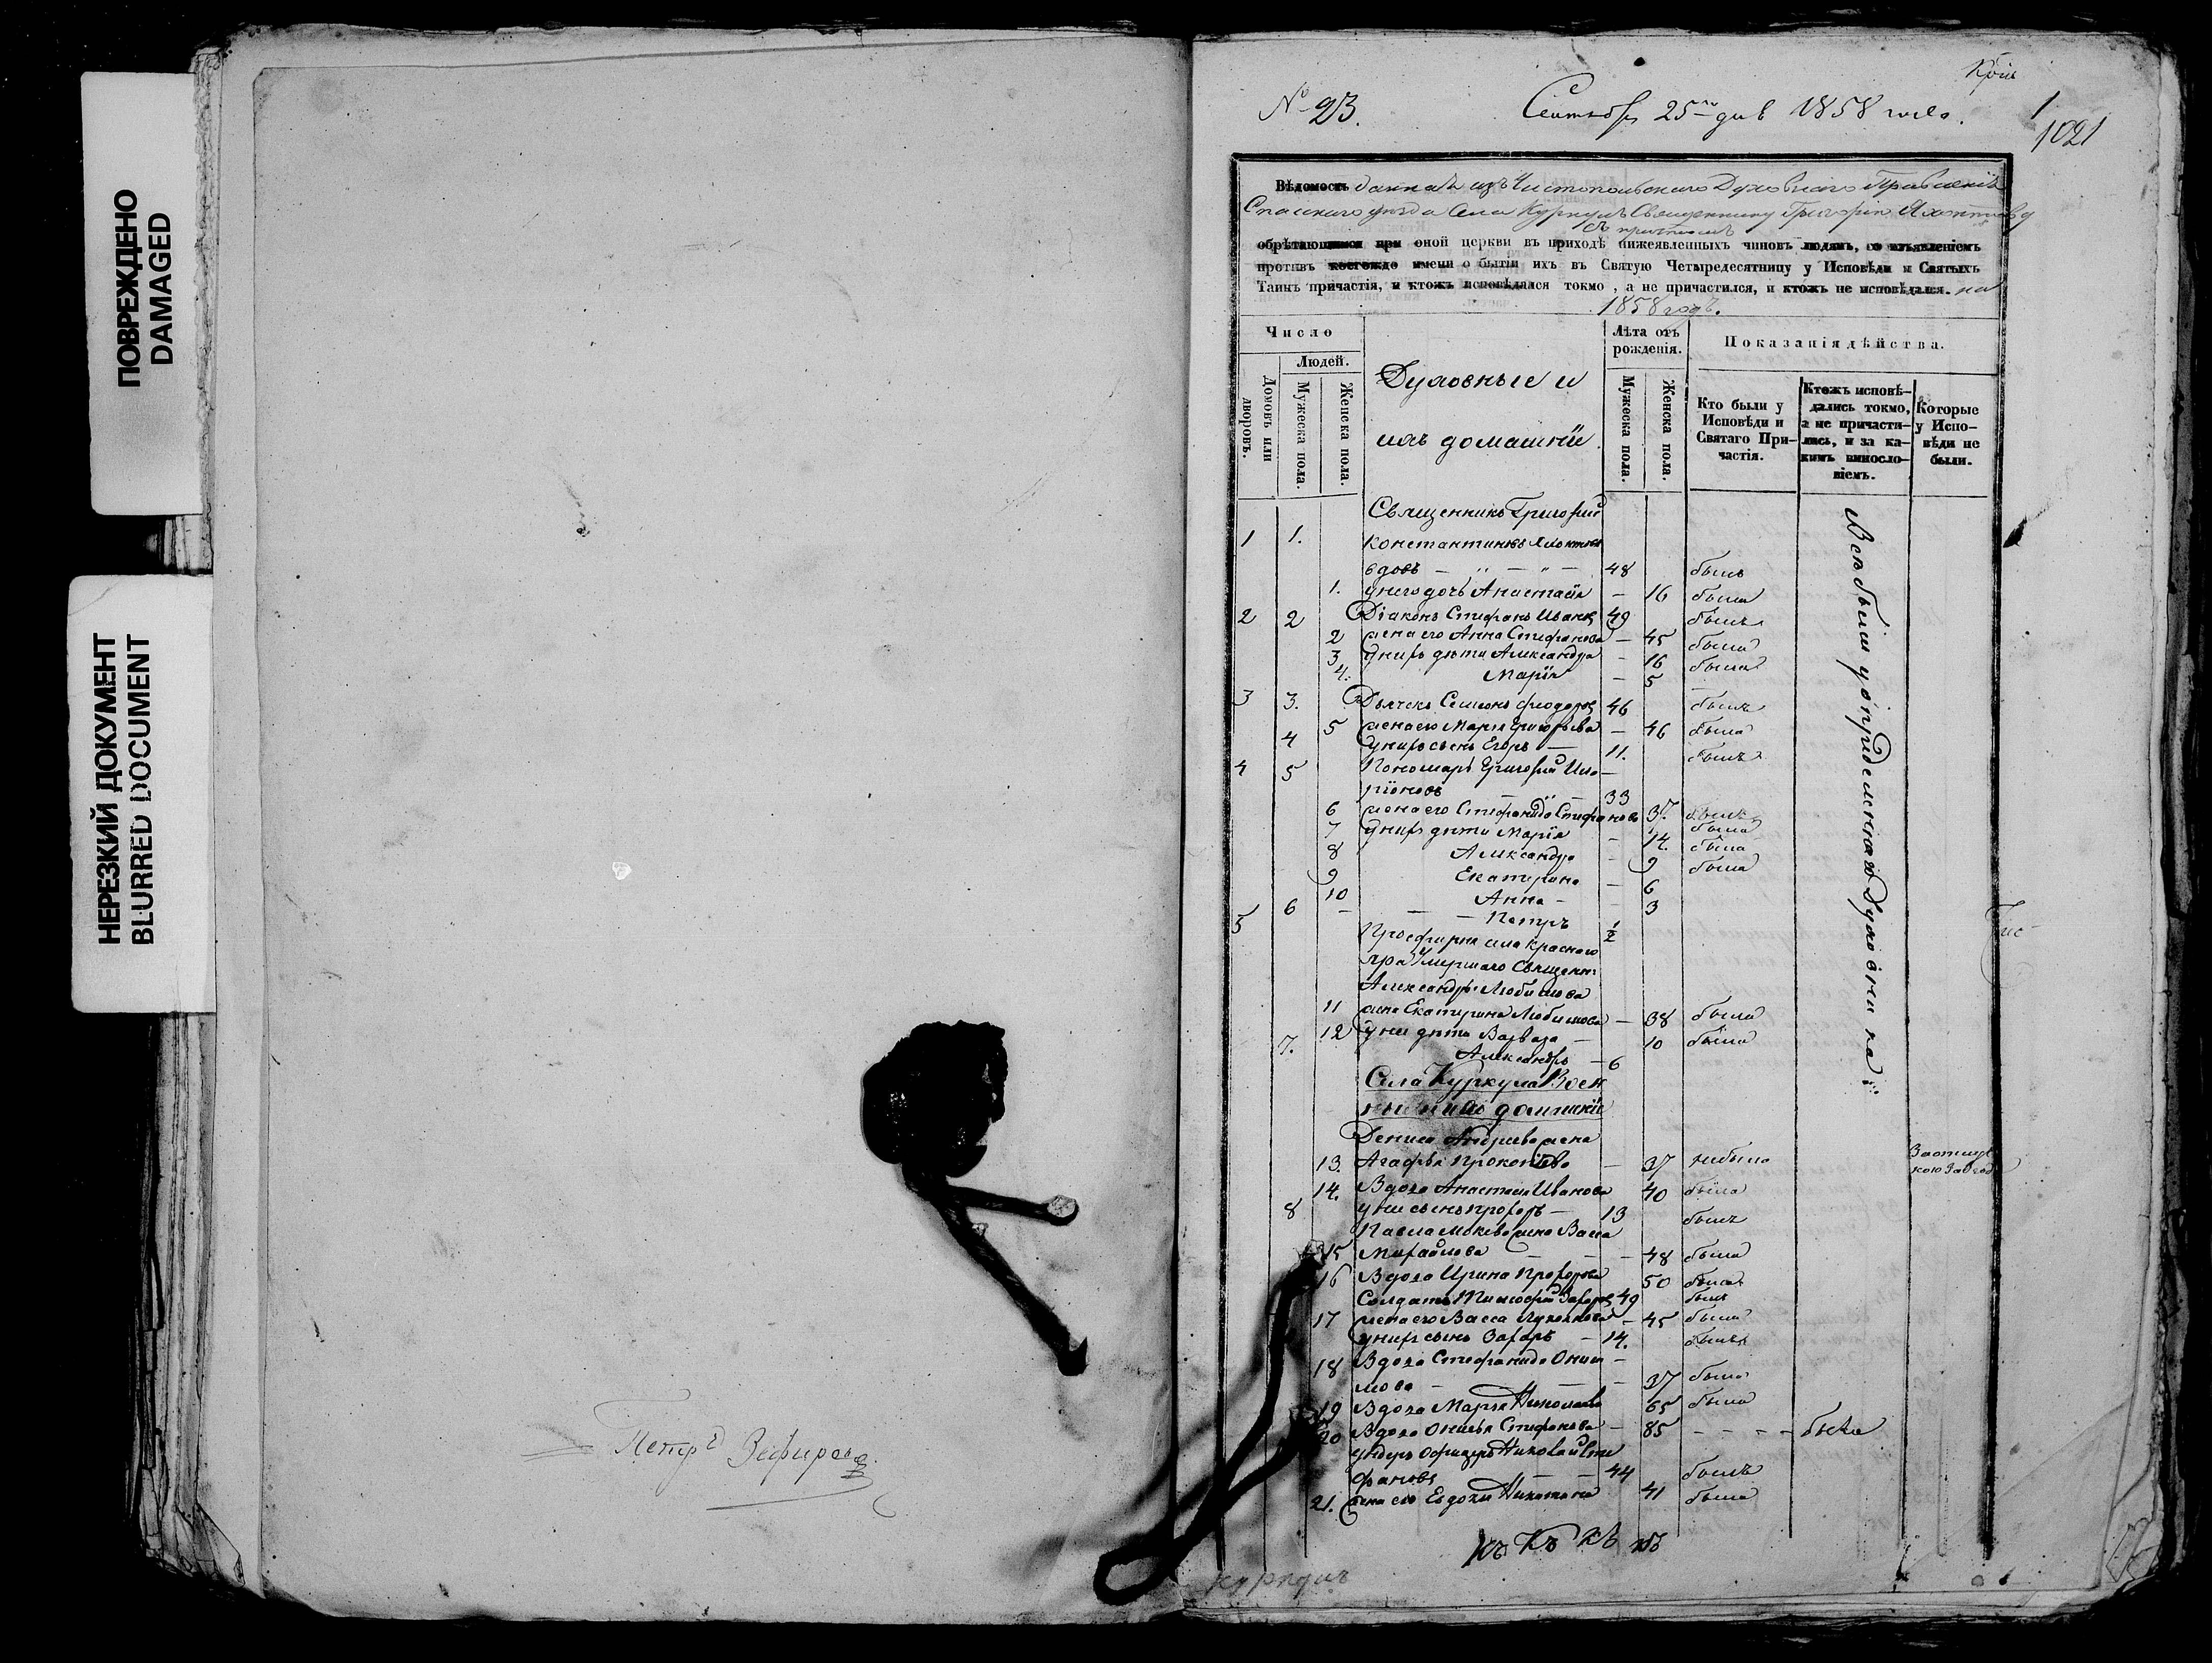 ПОВРЕЖДЕНО
DAMAGED
НЕРЕЗКИЙ ДОКУМЕНТ
BLURRED DOCUMENT
Петръ Зефировъ
№ 23.
Сентября 25го дня 1858 года.
1
1021
Вѣдомость данная изъ Чистопольскаго Духовнаго Правленія
Спасскаго уѣзда Села Куркулъ Священнику Григорію Яхонтову
съ причтомъ
обрѣтающимся при оной церкви въ приходѣ нижеявленныхъ чиновъ людямъ, со изъявленіемъ
противъ коегождо имени о бытіи ихъ въ Святую Четыредесятницу у Исповѣди и Святыхъ
Таинъ причастія, и ктожъ исповѣдался токмо, а не причастился, и ктожъ не исповѣдался. на
1858 годъ.
Число
Домовъ или дворовъ.
Людей.
Мужеска пола.
Женска пола.
Духовные и
ихъ домашніе
Лѣта отъ
рожденія.
Мужеска пола.
Женска пола.
Показанія дѣйства.
Кто были у
Исповѣди и
Святаго При-
частія.
Ктожъ исповѣ-
дались токмо,
а не причасти-
лись, и за ка-
кимъ винослo-
віемъ.
Которые
у Испо-
вѣди не
были.
Священникъ Григорий
1 1. Константиновъ Яхонтовъ
вдовъ — " — " — 48 былъ
1. у него дочь Анастасія — 16 была
2 2 Діаконъ Стефанъ Ивановъ 49 былъ
2 жена его Анна Стефанова — 45 была
3 у нихъ дѣти Александра — 16 была
4. Марія — 5 —
3 3. Дьячекъ Семенъ Феодоровъ 46 былъ
5 жена его Марья Григорьева — 46 была
4 у нихъ сынъ Егоръ — 11. былъ
4 5 Пономарь Григорій Ила-
ріоновъ — 33
6 жена его Стефанида Стефанова 37. былъ
7 у нихъ дѣти Марія — 14. была
8 Александра — 9 была
9 Екатерина — 6 была
10 Анна — 3
5 6 — — — Петръ ½
Просфирня села Краснаго
Яра Умершаго Священн.
Александра Любимова
11 жена Екатерина Любимова — 38 была
12 у ней дѣти Варвара — 10 была
7. Александръ — 6
Села Куркула Воен
ные и ихъ домашніе
Дениса Андреева жена
13. Агафья Прокопьева — 37 не была
14. Вдова Анастасія Иванова 40 была
8 у ней сынъ Прохоръ — 13 былъ
Павла Мокеева жена Васса
15 Михайлова — — — 48 была
16 Вдова Ирина Прохорова 50 была
Солдатъ Тимофей Захаровъ 49 былъ
17 жена его Васса Лукьянова — 45 была
у нихъ сынъ Захаръ — 14. былъ
18 Вдова Стефанида Ониси-
мова — 37 была
19 Вдова Марья Николаева 65 была
20 Вдова Стефанова — 85 — — — — была
Ундеръ офицеръ Николай Сте
фановъ — 44 былъ
21. жена его Евдокия Никитина 41 была
Всѣ были у опредѣленнаго Духовника
Куркулъ